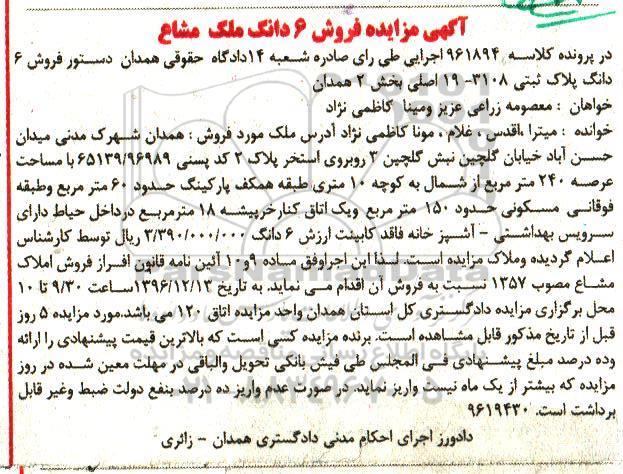 آگهی مزایده فروش ۶ دانگ ملک مشاع
در پرونده کلاسه ۹۶۱۸۹۴ اجرایی طی رای صادره شعبه ۱۴دادگاه حقوقی همدان دستور فروش ۶
دانگ پلاک ثبتی ۳۱۰۸- ۱۹ اصلی بخش ۲ همدان
خواهان : معصومه زراعی عزیز ومینا کاظمی نژاد
خوانده : میترا ،اقدس ، غلام ، مونا کاظمی نژاد آدرس ملک مورد فروش : همدان شهرک مدنی میدان
حسن آباد خیابان گلچین نبش گلچین ۳ روبروی استخر پلاک ۲ کد پستی ۶۵۱۳۹/۹۶۹۸۹ با مساحت
عرصه ۲۴۰ متر مربع از شمال به کوچه ۱۰ متری طبقه همکف پارکینگ حدود ۶۰ متر مربع وطبقه
فوقانی مسکونی حدود ۱۵۰ متر مربع ویک اتاق کنارخرپیشه ۱۸ مترمربع درداخل حیاط دارای
سرویس بهداشتی - آشپز خانه فاقد کابینت ارزش ۶ دانگ ۳/۳۹۰/۰۰۰/۰۰۰ ریال توسط کارشناس
اعلام گردیده وملاک مزایده است. لذا این اجراوفق ماده ۹و۱۰ آئین نامه قانون افراز فروش املاک
مشاع مصوب ۱۳۵۷ نسبت به فروش آن اقدام می نماید. به تاریخ ۱۳۹۶/۱۲/۱۳ساعت ۹/۳۰ تا ۱۰
محل برگزاری مزایده دادگستری کل استان همدان واحد مزایده اتاق ۱۲۰ می باشد.مورد مزایده ۵ روز
قبل از تاریخ مذکور قابل مشاهده است. برنده مزایده کسی است که بالاترین قیمت پیشنهادی را ارائه
وده درصد مبلغ پیشنهادی فی المجلس طی فیش بانکی تحویل والباقی در مهلت معین شده در روز
مزایده که بیشتر از یک ماه نیست واریز نماید. در صورت عدم واریز ده درصد بنفع دولت ضبط وغیر قابل
برداشت است. ۹۶۱۹۴۳۰
دادورز اجرای احکام مدنی دادگستری همدان - زائری